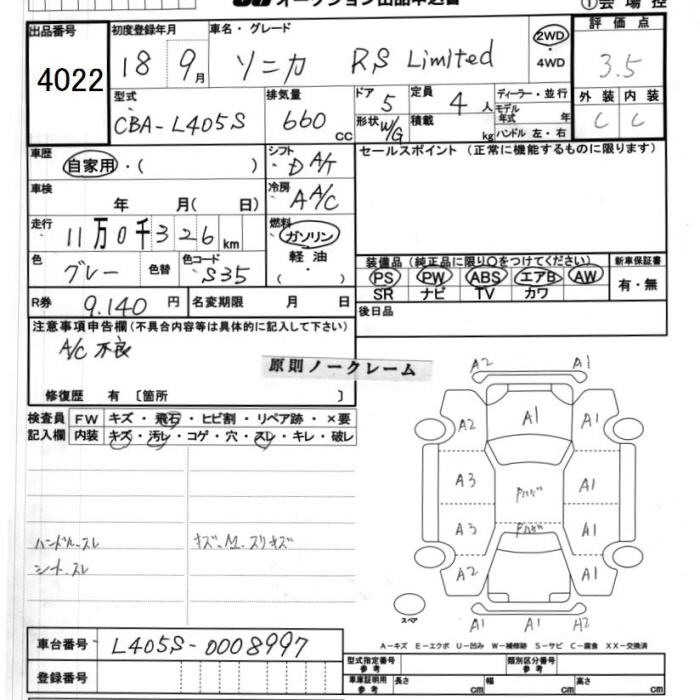 オークション出品申込書
①会場控
出品番号 4022
初度登録年月 18 9月
車名・グレード ソニカ RS Limited
2WD ・4WD
評価点 3.5
型式 CBA-L405S
排気量 660 cc
ドア 5 形状 W/G
定員 4 人
積載 kg
ディーラー・並行
モデル年式 年
ハンドル 左・右
外装 C 内装 C
車歴 自家用・( )
シフト D A/T
セールスポイント (正常に機能するものに限ります)
車検 年 月( 日)
冷房 AA/C
走行 11万0千326km
燃料 ガソリン 軽油 ・ ( )
色 グレー 色替 色コード S35
装備品 (純正品に限り○をつけてください)
PS PW ABS エアB AW
SR ナビ TV カワ
新車保証書 有・無
R券 9.140 円 名変期限 月 日
後日品
注意事項申告欄(不具合内容等は具体的に記入して下さい)
A/C 不良
原則ノークレーム
修復歴 有 〔箇所 〕
検査員記入欄
FW キズ・飛石・ヒビ割・リペア跡・×要
内装 キズ・汚レ・コゲ・穴・スレ・キレ・破レ
ハンドル.スレ
シート.スレ
A2 A1
A2 A1 A1
A3 A1
A3 A1
A2 A1
A1 A1 A2
スペア
A-キズ E-エクボ U-凹み W-補修跡 S-サビ C-腐食 XX-交換済
車台番号 L405S-0008997
登録番号
型式指定番号 参考 類別区分番号 参考
車庫証明用 参考 長さ cm 幅 cm 高さ cm